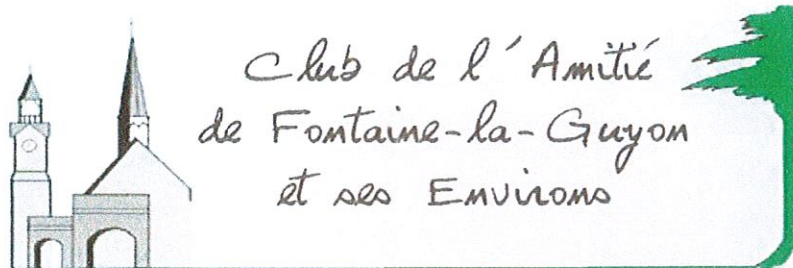 Club de l'Amitié
de Fontaine-la-Guyon
et ses Environs